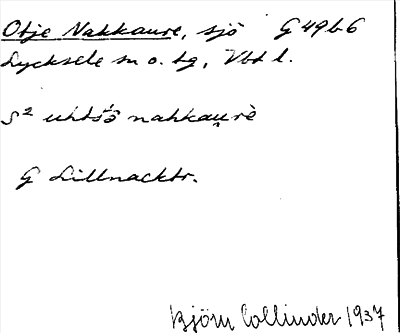 Otje Nakkaure, sjö G 49b6
Lycksele sn o. tg, Vbt l.
S² uhtsʹō nahkau̯rè
G Lillnacktr.
Björn Collinder 1937